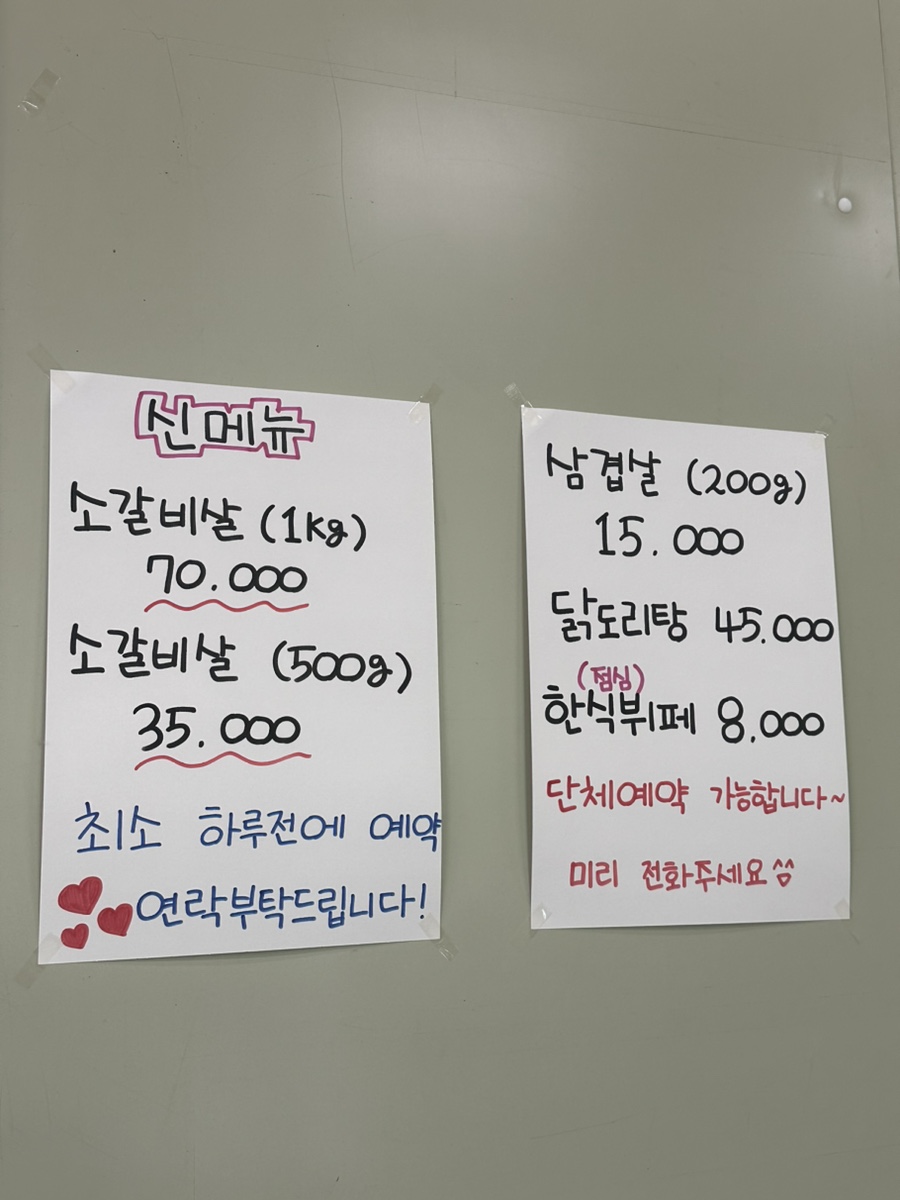 신메뉴
소갈비살 (1kg)
70.000
소갈비살 (500g)
35.000
최소 하루전에 예약
연락부탁드립니다!
삼겹살 (200g)
15.000
닭도리탕 45.000
(점심)
한식뷔페 8,000
단체예약 가능합니다~
미리 전화주세요^^